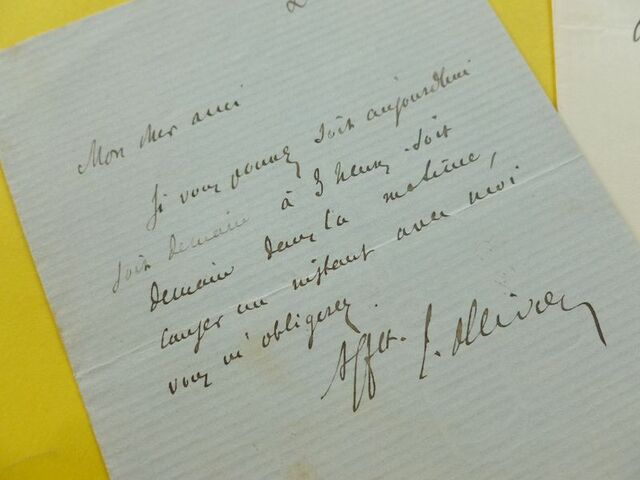 Mon cher ami
Si vous pouvez soit aujourdhui
soit demain à 3 heures soit
demain dans la matinée,
causer un instant avec moi
vous m'obligerez.
Affet. E. Ollivier